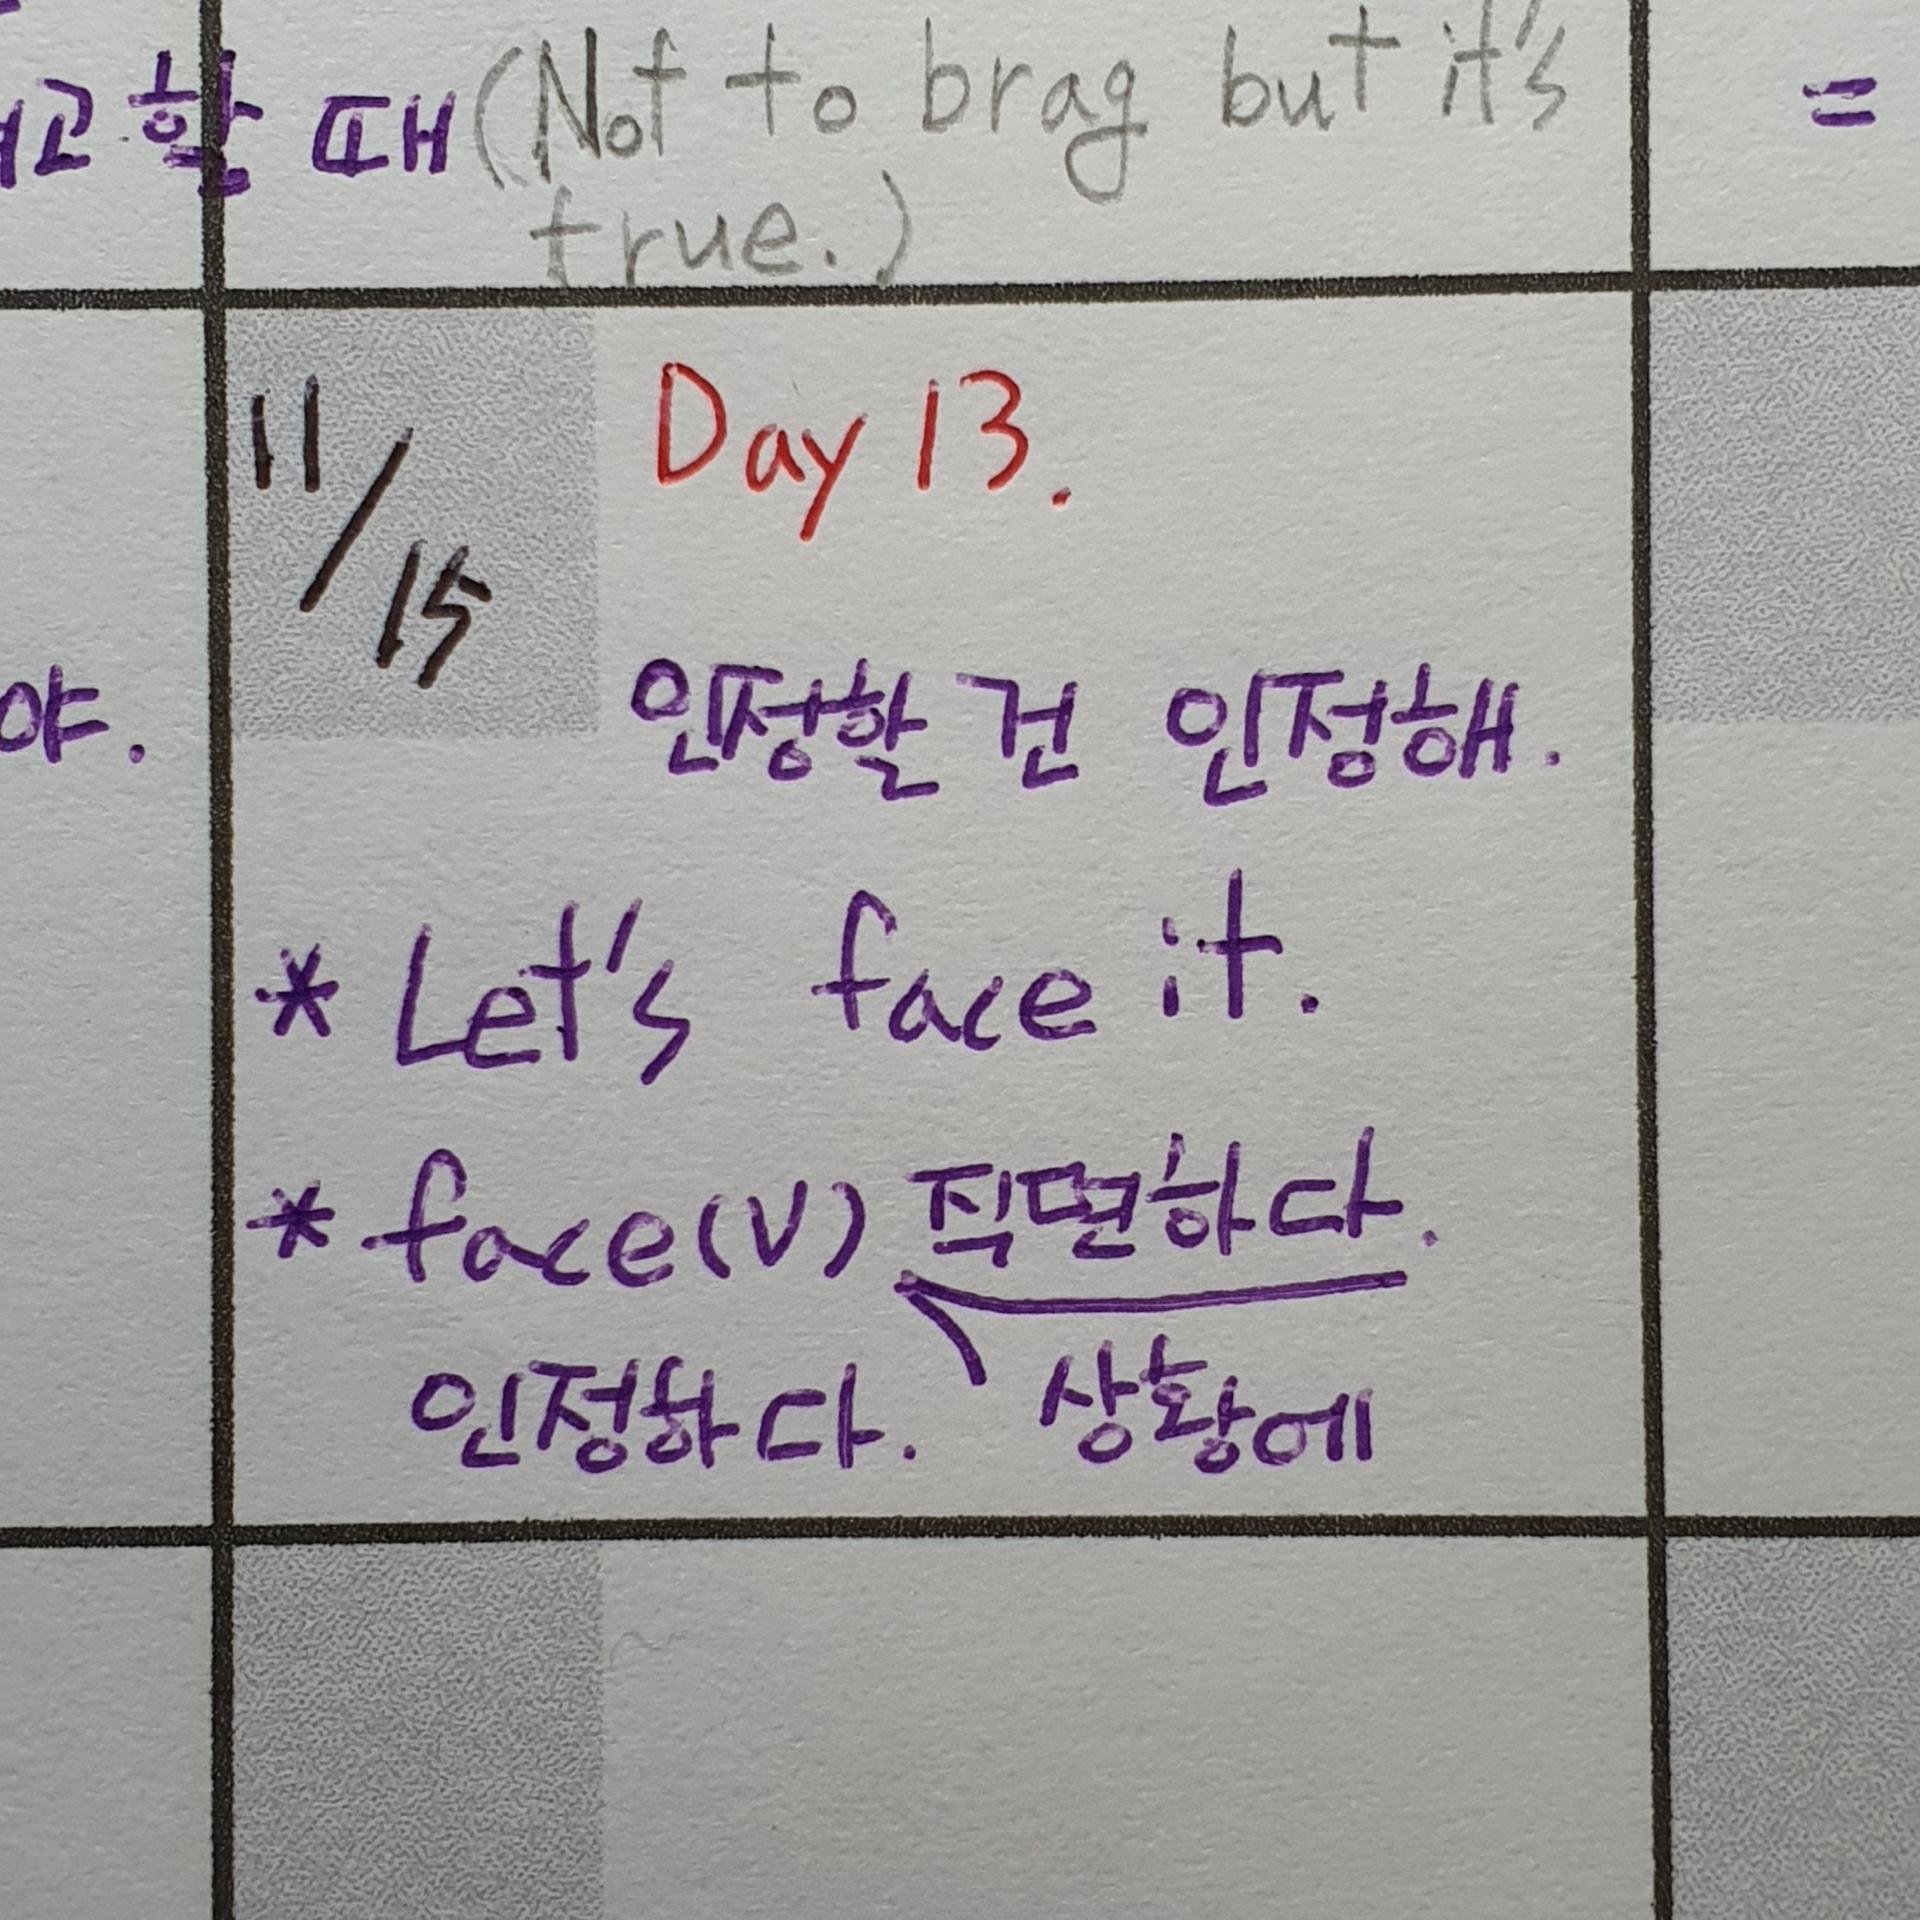 할 때 (Not to brag but it's
true.)
=
11/15
Day 13.
야.
인정할 건 인정해.
* Let's face it.
* face(v) 직면하다.
인정하다. 상황에